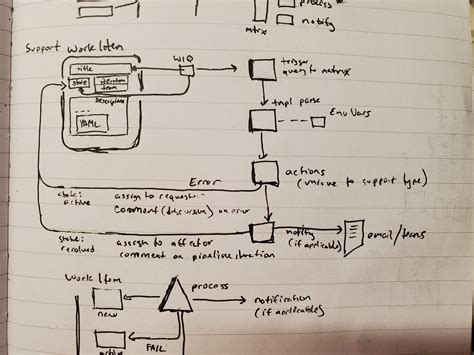 process
notify
mtrx
Support Work Item
WIQ
title
trigger
query to
state
iteration
team
Description
YAML
tmpl parse
Env Vars
actions
(unique to support type)
Error
state:
active
assign to
comment (discussion) on error
notify
(if applicable)
email/teams
state:
resolved
assign to
comment on pipeline
Work Item
process
new
notification
(if applicable)
active
FAIL